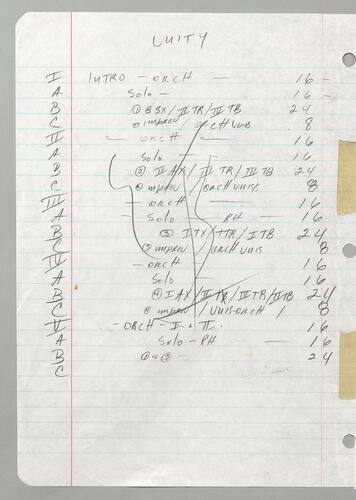 UNITY
I INTRO - ORCH - 16 -
A Solo - 16 -
B ① BBX / II TR / II TB 24
C ① improv / ORCH UNIS 8
II - ORCH - 16
A Solo - 16
B ② II AX / III TR / III TB 24
C ② improv / ORCH UNIS 8
III - ORCH 16
A - Solo - RH - 16
B ③ I TX / TTR / I TB 24
C ③ improv / ORCH UNIS 8
IV - ORCH 16
A Solo 16
B ④ I AX / II TR / IV TR / II TB 24
C ④ improv / UNIS-ORCH / 8
V - ORCH - I & II. 16
A Solo - RH - 16
B 24
C